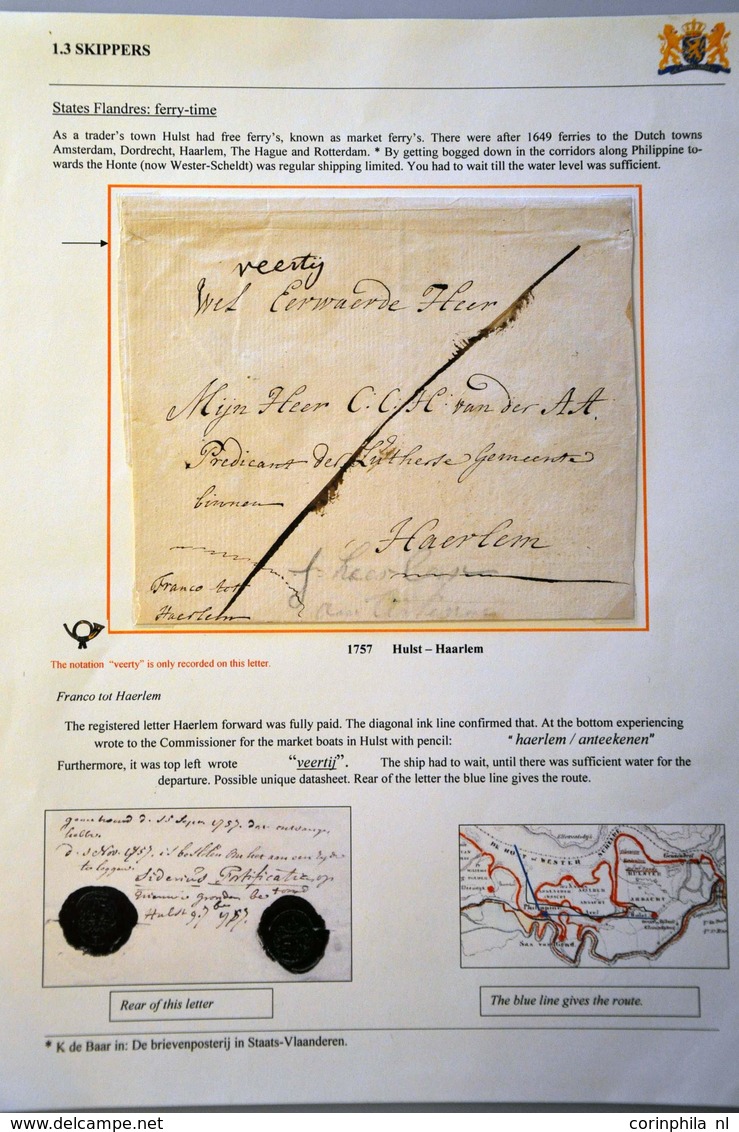 1.3 SKIPPERS
States Flandres: ferry-time
As a trader's town Hulst had free ferry's, known as market ferry's. There were after 1649 ferries to the Dutch towns
Amsterdam, Dordrecht, Haarlem, The Hague and Rotterdam. * By getting bogged down in the corridors along Philippine to-
wards the Honte (now Wester-Scheldt) was regular shipping limited. You had to wait till the water level was sufficient.
veertij
Wel Eerwaerde Heer
Mijn Heer C: C: H: van der AA.
Predicant der Lutherse Gemeente
binnen
Haerlem
Franco tot
Haerlem
1757 Hulst – Haarlem
The notation "veerty" is only recorded on this letter.
Franco tot Haerlem
The registered letter Haerlem forward was fully paid. The diagonal ink line confirmed that. At the bottom experiencing
wrote to the Commissioner for the market boats in Hulst with pencil: "haerlem / anteekenen"
Furthermore, it was top left wrote "veertij". The ship had to wait, until there was sufficient water for the
departure. Possible unique datasheet. Rear of the letter the blue line gives the route.
1757
d. 3 Nov. 1757.
Hulst 1757
Sas van Gend
Rear of this letter
The blue line gives the route.
* K de Baar in: De brievenposterij in Staats-Vlaanderen.
corinphila nl